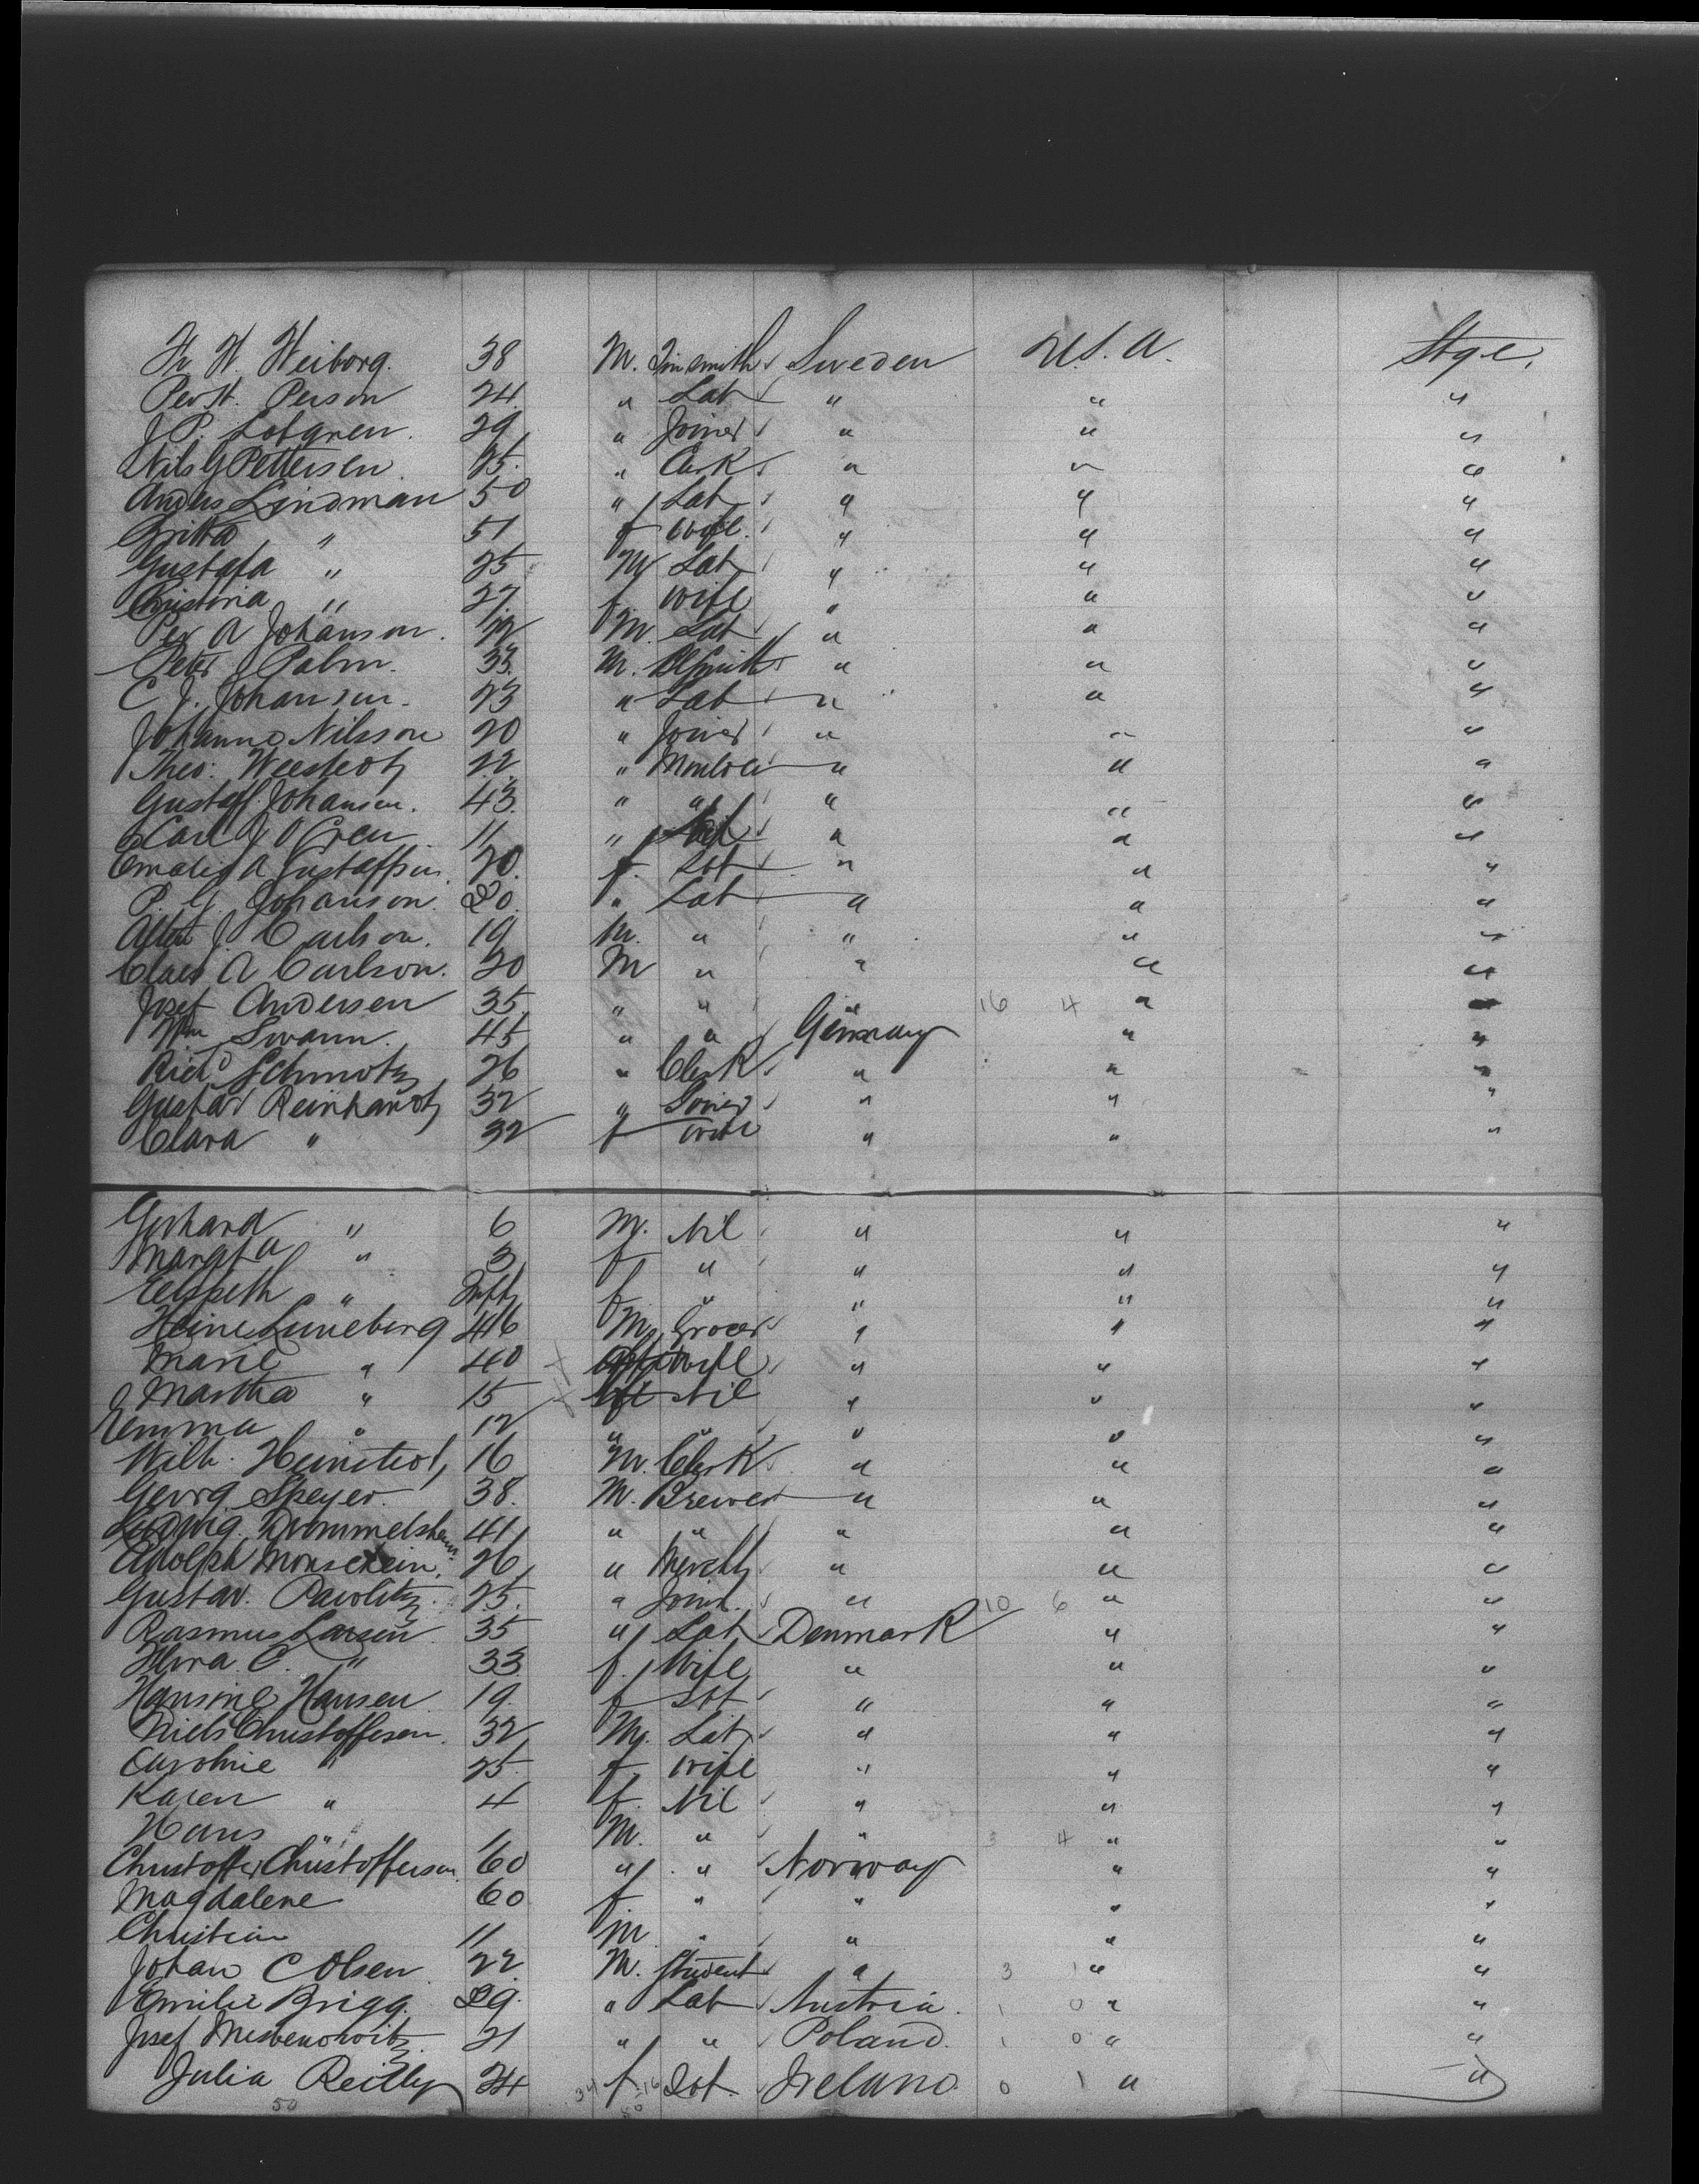 Fr W. Weiborg. 38 M. Tinsmith Sweden U.S.A. Stge.
Per H. Person 24 " Lab " " "
J P. Lofgren. 29 " Joiner " " "
Nils G Pettersen 25. " Clerk " " "
Anders Lindman 50 " Lab " " "
Britta " 51 f Wife " " "
Gustafa " 25 M Lab " " "
Christina " 27 f. Wife " " "
Per A Johanson. 22 M. Lab " " "
Peter J Palm. 33. M. BlSmith " " "
C J. Johansen. 23 " Lab " " "
Johanne Nilsson 20 " Joiner " " "
Theo: 22 " " " "
Gustaf Johansen. 43. " " " " "
Carl J O Gren 11 " Nil " " "
Emalie A Gustaffson. 20. f. Sot " " "
P. G. Johanson. 20. " Lab " " "
Albert J. Carlson. 19 M. " " " "
Claes A Carlson. 20 M " " " "
Josef Andersen 35 " " " 16 4 " "
Wm Swann. 45 " " Germany " "
Richd Schmotz 26 " Clerk " " "
Gustav Reinhardt 32 " Joiner " " "
Clara " 32 f Wife " " "
Gerhard " 6 M. Nil " " "
Margta " 3 f " " " "
Elspeth " Inft f " " " "
Heine Luneburg 46 M. Grocer " " "
Marie " 40 Wife " " "
Martha " 15 Nil " " "
Emma " 12 " " " " "
Wilh. 16 M. Clerk " " "
Georg Speyer. 38. M. Brewer " " "
Ludwig. Drommelshem 41 " " " " "
Adolph Monschein. 26 " Mercht " " "
Gustav. Pavolitz. 25. " Joiner. " 10 6 " "
Rasmus Larsen 35 " Lab Denmark " "
C. " 33 f. Wife " " "
Hansine Hansen 19. f Sot " " "
Niels Christoffersen. 32 M. Lab " " "
Caroline " 25. f Wife " " "
Karen " 4 f. Nil " " "
Hans " 1 M. " " 3 4 " "
Christoffer Christofferson 60 " " Norway " "
Magdalene 60 f " " " "
Christian 11 M " " " "
Johan C Olsen 22. M. Student " 3 1 " "
Emilie Brigg. 29. " Lab Austria. 1 0 " "
Josef 21 " " Poland. 1 0 " "
Julia Reilly 24 34 f 16 Sot. Ireland. 0 1 " "
50 50